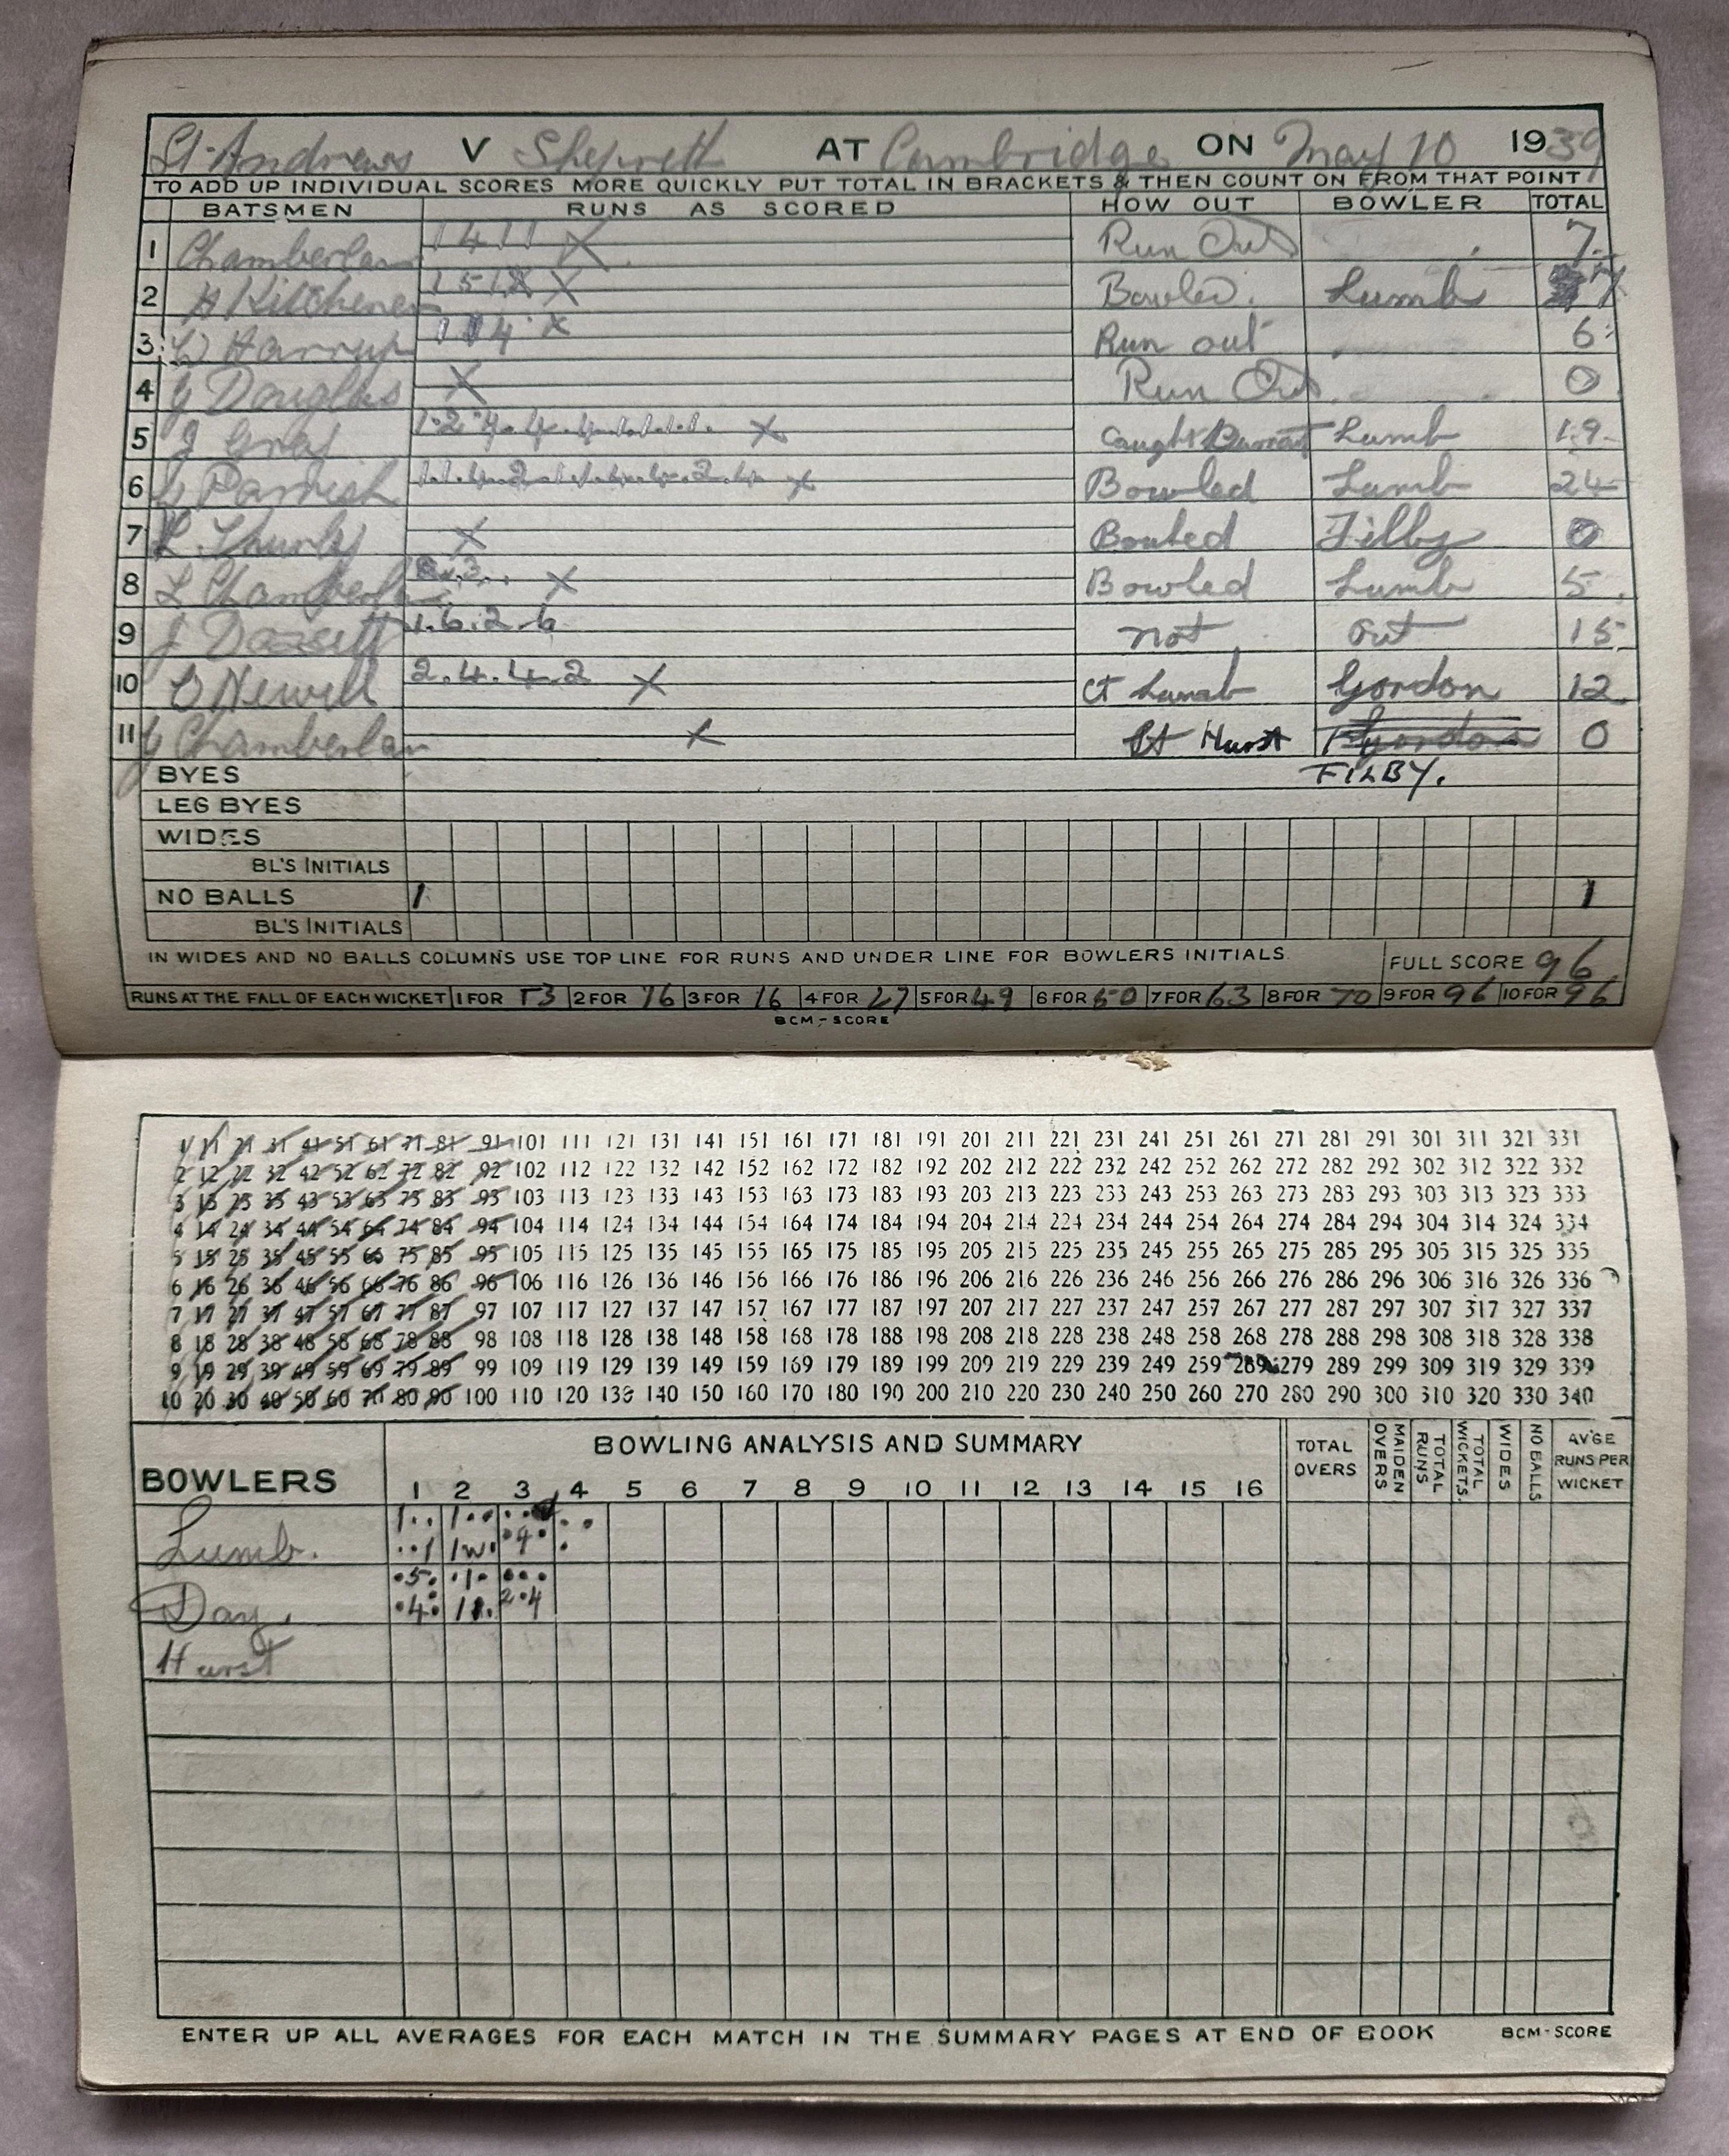 St. Andrews V Shepreth AT Cambridge ON May 10 1939
TO ADD UP INDIVIDUAL SCORES MORE QUICKLY PUT TOTAL IN BRACKETS & THEN COUNT ON FROM THAT POINT
BATSMEN RUNS AS SCORED HOW OUT BOWLER TOTAL
1 Chamberlan 1 4 1 1 X Run Out 7
2 H Kitchener 1 5 1 X Bowled. Lumb 7
3 Harrup 1 1 4 X Run out 6
4 G Douglas X Run Out 0
5 J Gray 1.2.4.4.4.1.1.1.1. X Caught Lumb 19
6 G Parrish X Bowled Lumb 24
7 L. Thurly X Bowled Filby 0
8 L Chamberlan X Bowled Lumb 5
9 J Dazsett 1.6.2.6 not out 15
10 D Newell 2.4.4.2 X Ct Lumb Gordon 12
11 G Chamberlan X St Hurst Gordon 0
BYES FILBY.
LEG BYES
WIDES
BL'S INITIALS
NO BALLS 1 1
BL'S INITIALS
IN WIDES AND NO BALLS COLUMNS USE TOP LINE FOR RUNS AND UNDER LINE FOR BOWLERS INITIALS. FULL SCORE 96
RUNS AT THE FALL OF EACH WICKET 1 FOR 13 2 FOR 16 3 FOR 16 4 FOR 27 5 FOR 49 6 FOR 50 7 FOR 63 8 FOR 70 9 FOR 96 10 FOR 96
BCM-SCORE
1 11 21 31 41 51 61 71 81 91 101 111 121 131 141 151 161 171 181 191 201 211 221 231 241 251 261 271 281 291 301 311 321 331
2 12 22 32 42 52 62 72 82 92 102 112 122 132 142 152 162 172 182 192 202 212 222 232 242 252 262 272 282 292 302 312 322 332
3 13 23 33 43 53 63 73 83 93 103 113 123 133 143 153 163 173 183 193 203 213 223 233 243 253 263 273 283 293 303 313 323 333
4 14 24 34 44 54 64 74 84 94 104 114 124 134 144 154 164 174 184 194 204 214 224 234 244 254 264 274 284 294 304 314 324 334
5 15 25 35 45 55 65 75 85 95 105 115 125 135 145 155 165 175 185 195 205 215 225 235 245 255 265 275 285 295 305 315 325 335
6 16 26 36 46 56 66 76 86 96 106 116 126 136 146 156 166 176 186 196 206 216 226 236 246 256 266 276 286 296 306 316 326 336
7 17 27 37 47 57 67 77 87 97 107 117 127 137 147 157 167 177 187 197 207 217 227 237 247 257 267 277 287 297 307 317 327 337
8 18 28 38 48 58 68 78 88 98 108 118 128 138 148 158 168 178 188 198 208 218 228 238 248 258 268 278 288 298 308 318 328 338
9 19 29 39 49 59 69 79 89 99 109 119 129 139 149 159 169 179 189 199 209 219 229 239 249 259 269 279 289 299 309 319 329 339
10 20 30 40 50 60 70 80 90 100 110 120 130 140 150 160 170 180 190 200 210 220 230 240 250 260 270 280 290 300 310 320 330 340
BOWLERS BOWLING ANALYSIS AND SUMMARY TOTAL OVERS MAIDEN OVERS TOTAL RUNS TOTAL WICKETS. WIDES NO BALLS AV'GE RUNS PER WICKET
1 2 3 4 5 6 7 8 9 10 11 12 13 14 15 16
Lumb. 1.. 1.. ..
..1 1w. .4. .
Day. .5. .1. ...
.4. 11. 2.4
Hurst
ENTER UP ALL AVERAGES FOR EACH MATCH IN THE SUMMARY PAGES AT END OF BOOK BCM-SCORE